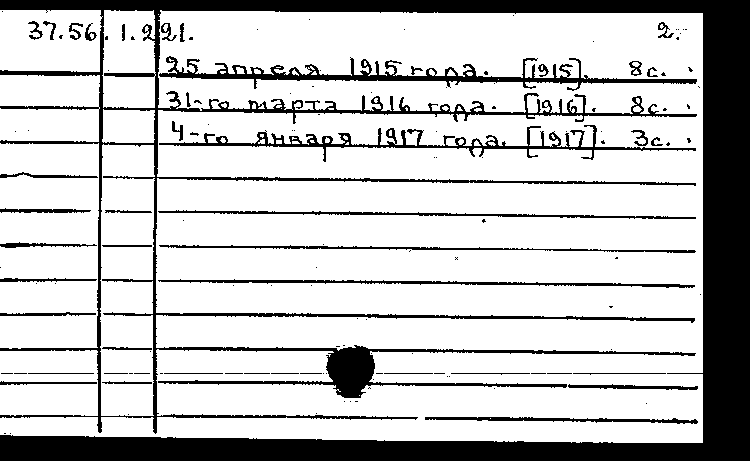 37.56.1.221. 2.
25 апреля 1915 года. [1915]. 8с.
31-го марта 1916 года. [1916]. 8с.
4-го января 1917 года. [1917]. 3с.